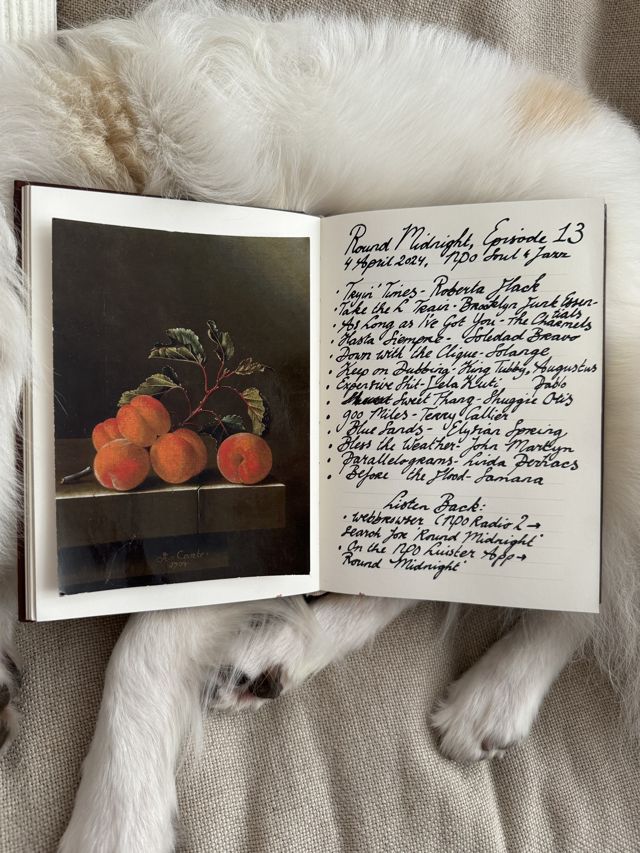 A. Coorte
1704
Round Midnight, Episode 13
4 April 2024, NPO Soul & Jazz
• Tryin' Times - Roberta Flack
• Take the L Train - Brooklyn Funk Essen-
tials
• As Long as I've Got You - The Charmels
• Hasta Siempre - Soledad Bravo
• Down with the Clique - Solange
• Keep on Dubbing - King Tubby, Augustus
Pablo
• Expensive Shit - Fela Kuti
Sweet Thang - Shuggie Otis
• 900 Miles - Terry Callier
• Blue Sands - Elysian Spring
• Bless the Weather - John Martyn
• Parallelograms - Linda Perhacs
• Before the Flood - Samara
Listen Back:
• webbrowser (NPO Radio 2 →
search for 'Round Midnight'
• On the NPO Luister App →
Round Midnight'